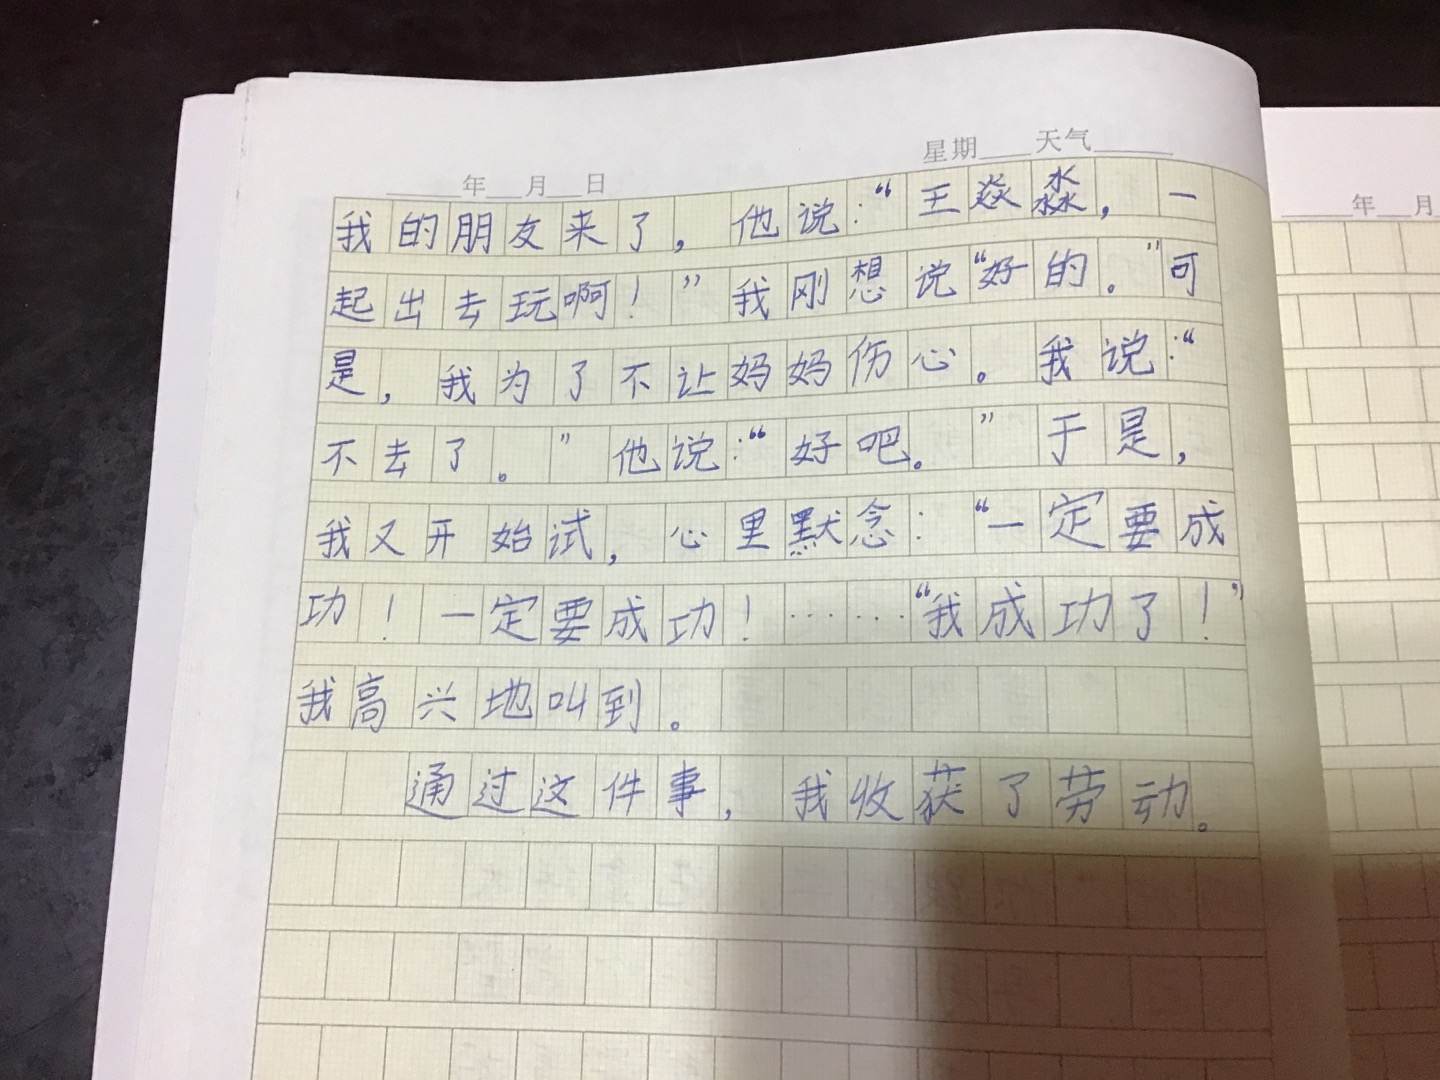 星期____天气______
_____年__月__日
____年__月
我的朋友来了，他说：“王焱淼，一
起出去玩啊！”我刚想说“好的。”可
是，我为了不让妈妈伤心。我说：“
不去了。”他说：“好吧。”于是，
我又开始试，心里默念：“一定要成
功！一定要成功！……“我成功了！”
我高兴地叫到。
通过这件事，我收获了劳动。